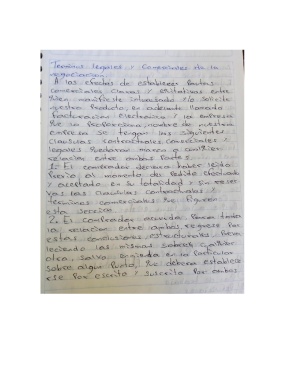 Terminos legales y Comerciales de la
negociacion
A los efectos de establecer Pautas
comerciales claras y entre
quien manifieste interesado y/o solicite
nuestro Producto, en adelante llamado
Facturacion electronica y la empresa
que la Proporciona, nombre de nuestra
empresa se tengan las siguientes
clausulas contractuales, comerciales y
legales que daran marco a cualquier
relacion entre ambas Partes.
1. El comprador declara haber leido
Previo al momento del Pedido efectuado
y aceptado en su totalidad y sin reser
vas las clausulas contractuales y
terminos comerciales que figuran
esta servicio
2. El comprador acuerda Para toda
la relacion entre ambos, regirse Por
estas condiciones estructurales, Preva
leciendo las mismas sobre cualquier
otra, salvo en la Particular
sobre algun Punto, que debera establecer
ese Por escrito y suscrito Por ambos